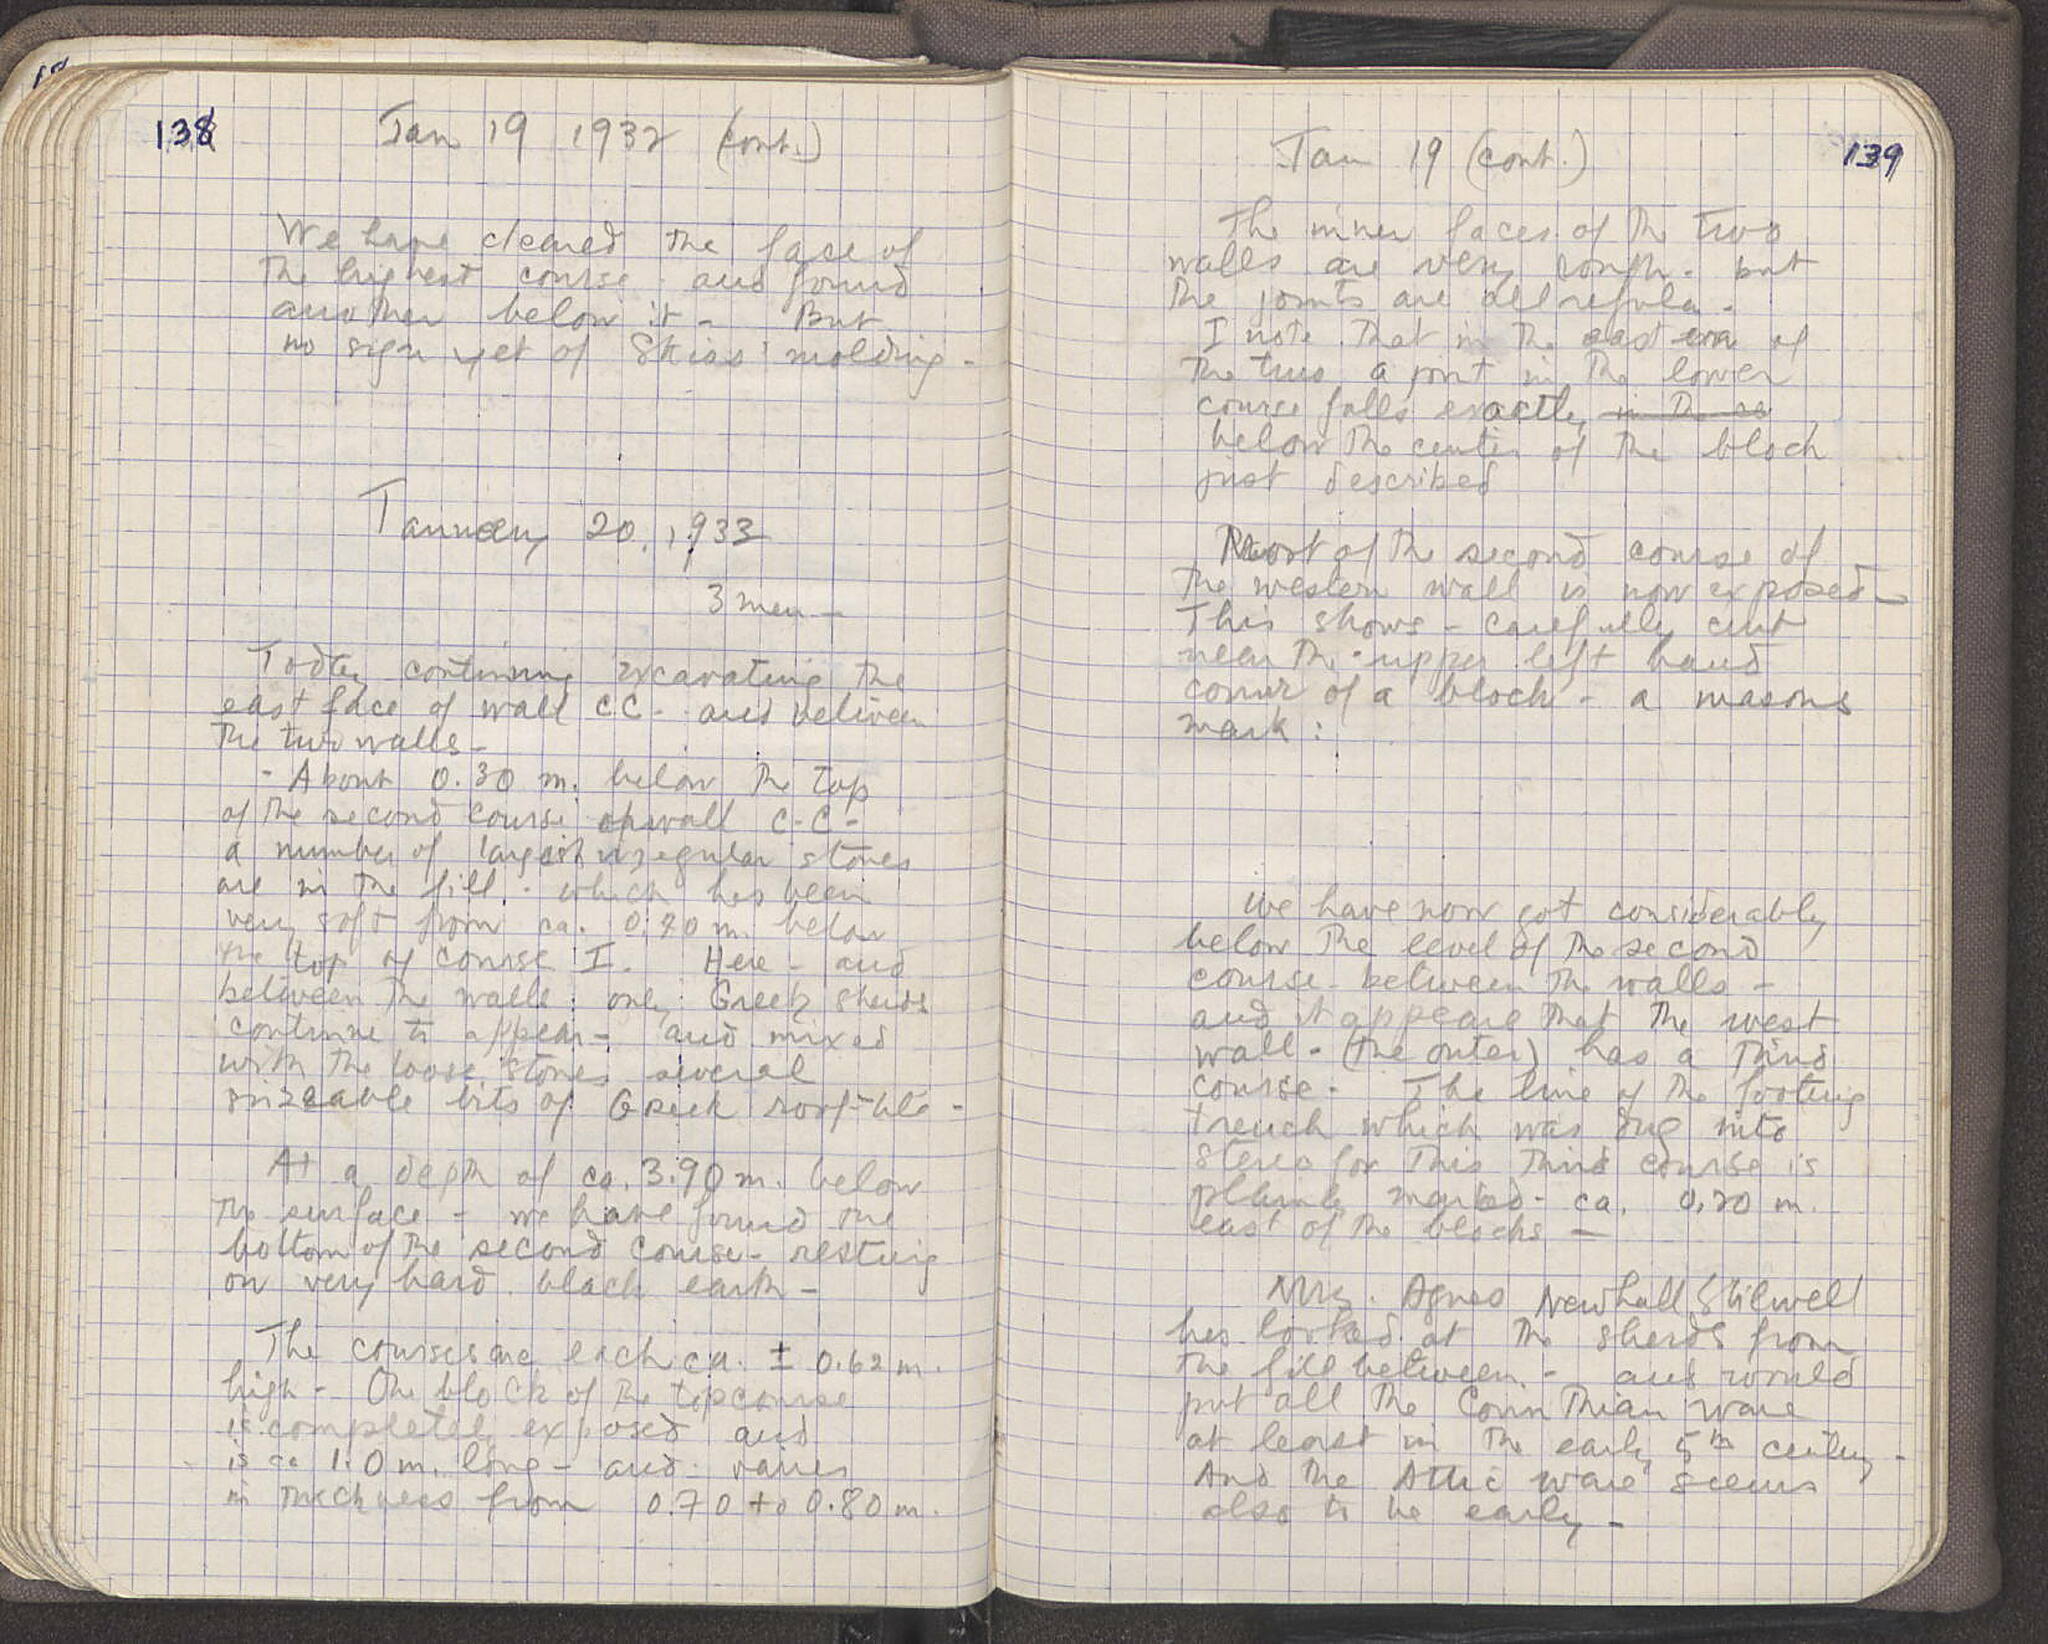 138
Jan 19 1932 (cont.)
We have cleared the face of
the highest course - and found
another below it - But
no sign yet of Skias' molding -
January 20, 1933
3 men -
Today continuing excavating the
east face of wall CC - and between
the two walls -
- About 0.30 m. below the top
of the second course of wall C-C -
a number of largish irregular stones
are in the fill - which has been
very soft from ca. 0.20 m. below
the top of course I. Here - and
between the walls - only Greek sherds
continue to appear - and mixed
with the loose stones several
sizeable bits of Greek roof-tile -
At a depth of ca. 3.90 m. below
the surface - we have found the
bottom of the second course - resting
on very hard black earth -
The courses are each ca. ± 0.62 m.
high - One block of the top course
is completely exposed and
is ca 1.0 m. long - and varies
in thickness from 0.70 to 0.80 m.
139
Jan 19 (cont.)
The inner faces of the two
walls are very rough - but
the joints are all regular -
I note that in the eastern of
the two a joint in the lower
course falls exactly
below the center of the block
just described
Most of the second course of
the western wall is now exposed -
This shows - carefully cut
near the upper left hand
corner of a block - a masons
mark :
We have now got considerably
below the level of the second
course between the walls -
and it appears that the west
wall - (the outer) has a third
course - The line of the footing
trench which was dug into
stereo for this third course is
plainly marked - ca. 0.20 m.
east of the blocks -
Mrs. Agnes Newhall Stilwell
has looked at the sherds from
the fill between - and would
put all the Corinthian ware
at least in the early 5th century -
And the Attic ware seems
also to be early -